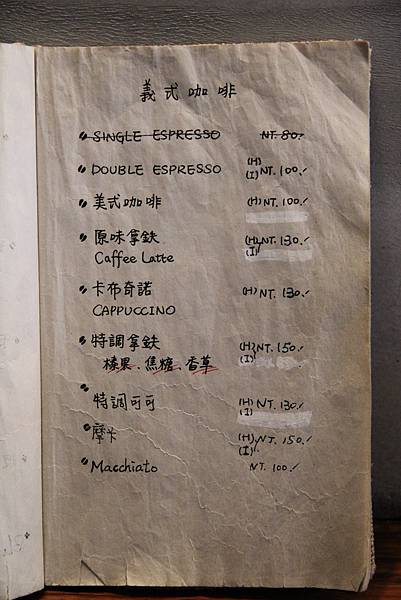 義式咖啡
SINGLE ESPRESSO NT. 80.-
DOUBLE ESPRESSO (H) (I) NT. 100.-
美式咖啡 (H) NT. 100.-
原味拿鉄 (H) (I) NT. 130.-
Caffee Latte
卡布奇諾 (H) NT. 130.-
CAPPUCCINO
特調拿鉄 (H) (I) NT. 150.-
榛果、焦糖、香草
特調可可 (H) (I) NT. 130.-
摩卡 (H) (I) NT. 150.-
Macchiato NT. 100.-